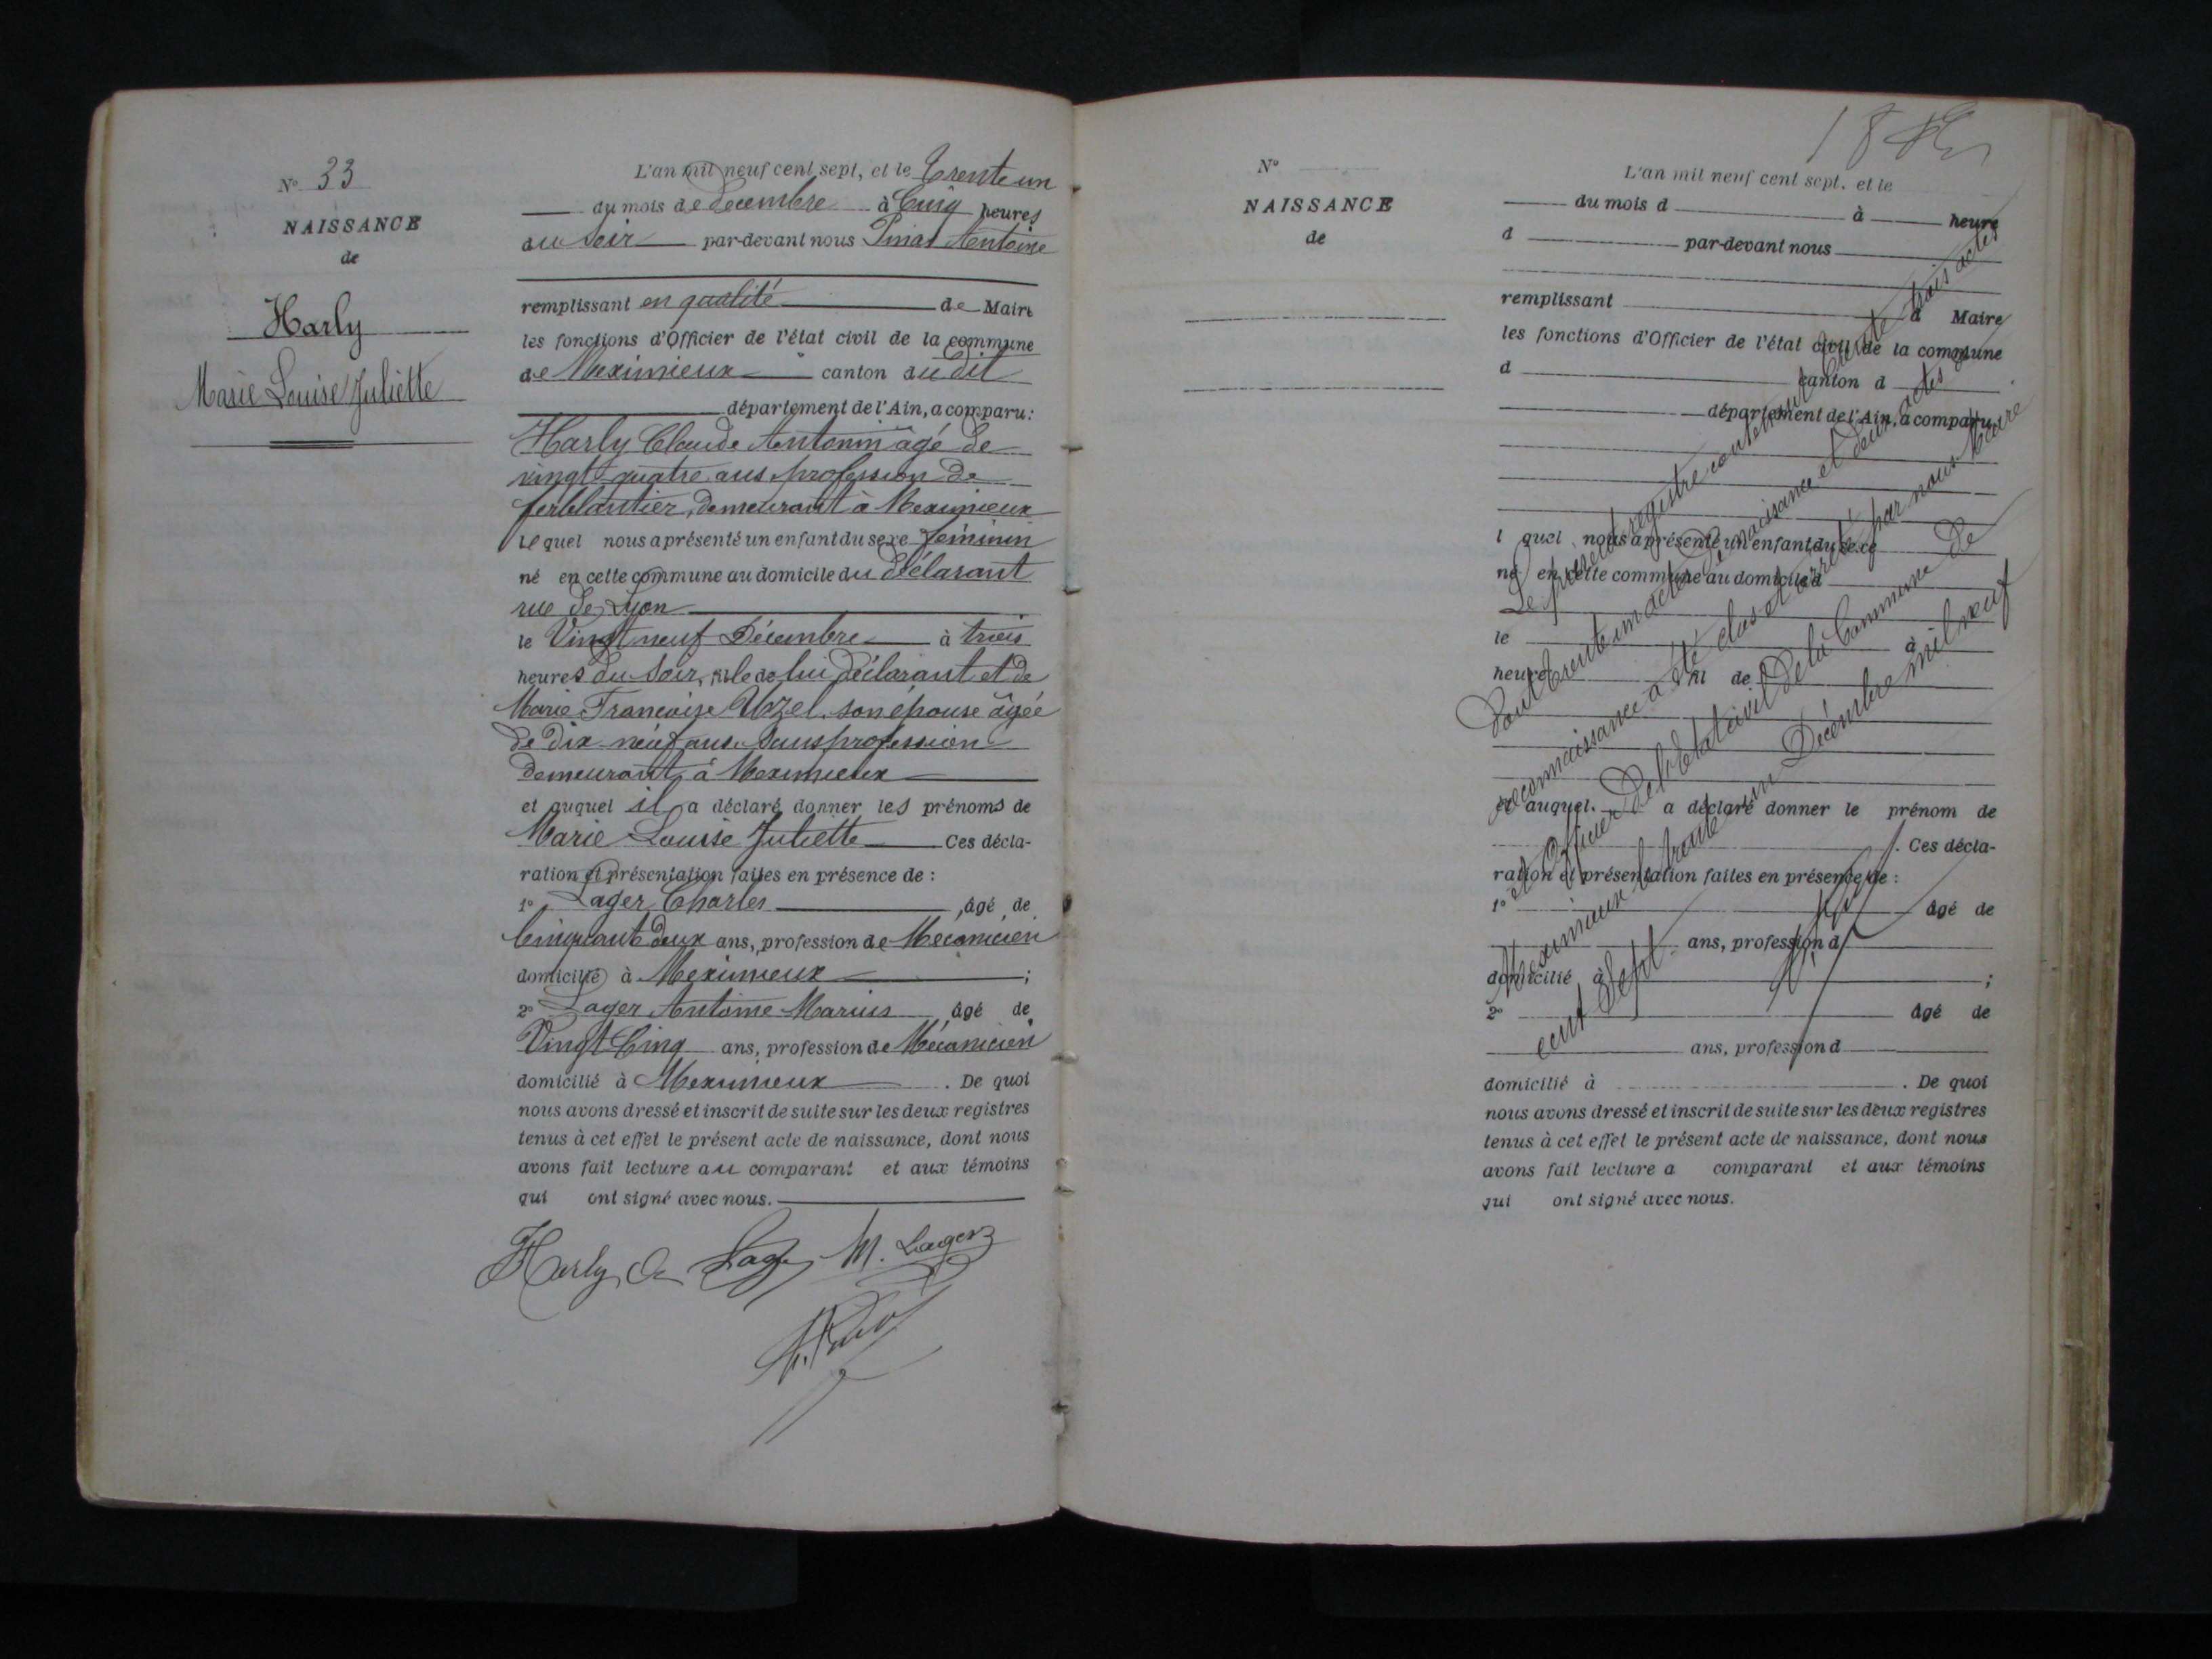 N° 33
NAISSANCE
de
Harly
Marie Louise Juliette
L'an mil neuf cent sept, et le trente un
du mois de Décembre à Cinq heures
du Soir par-devant nous Antoine
remplissant en qualité de Maire
les fonctions d'Officier de l'état civil de la commune
de Meximieux canton dudit
département de l'Ain, a comparu:
Harly Claude Antonin âgé de
vingt quatre ans profession de
ferblantier, demeurant à Meximieux
lequel nous a présenté un enfant du sexe féminin
né en cette commune au domicile du déclarant
rue de Lyon
le Vingt neuf Décembre à trois
heures du Soir, de lui déclarant et de
Marie Françoise son épouse âgée
de dix-neuf ans Sans profession
demeurant à Meximieux
et auquel il a déclaré donner les prénoms de
Marie Louise Juliette Ces décla-
ration et présentation faites en présence de :
1° Lager Charles, âgé de
Cinquante deux ans, profession de Mecanicien
domicilié à Meximieux ;
2° Lager Antoine Marius âgé de
Vingt Cinq ans, profession de Mécanicien
domicilié à Meximieux. De quoi
nous avons dressé et inscrit de suite sur les deux registres
tenus à cet effet le présent acte de naissance, dont nous
avons fait lecture au comparant et aux témoins
qui ont signé avec nous.
Harly M. Lager
N°
NAISSANCE
de
18
L'an mil neuf cent sept, et le
du mois d à heure
d par-devant nous
remplissant d Maire
les fonctions d'Officier de l'état civil de la commune
d canton d
département de l'Ain, a comparu:
l quel nous a présenté un enfant du sexe
né en cette commune au domicile d
le à
heure de
et auquel a déclaré donner le prénom de
. Ces décla-
ration et présentation faites en présence de :
1° âgé de
ans, profession d
domicilié à ;
2° âgé de
ans, profession d
domicilié à . De quoi
nous avons dressé et inscrit de suite sur les deux registres
tenus à cet effet le présent acte de naissance, dont nous
avons fait lecture a comparant et aux témoins
qui ont signé avec nous.
Le présent registre contenant trente trois actes
dont trente un actes de naissance et deux actes de
reconnaissance a été clos et arrêté par nous Maire
et Officier de l'Etat civil de la Commune de
Meximieux le trente un Décembre mil neuf
cent Sept.